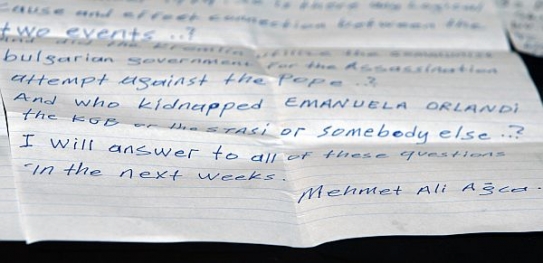 cause and effect connection between the
two events ..?
And did the Kremlin utilize the communist
bulgarian government for the Assassination
attempt against the Pope ..?
And who kidnapped EMANUELA ORLANDi
the KGB or the STASi or somebody else ..?
I will answer to all of these questions
in the next weeks.
Mehmet Ali Ağca.